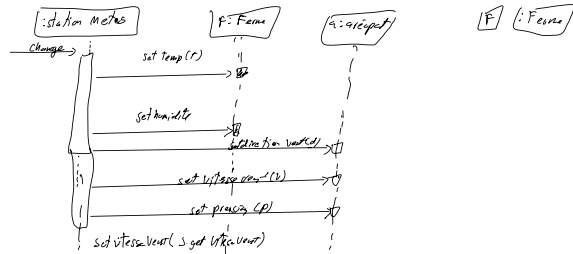 :station Meteo
F: Ferme
a: aréoport
F
:Ferme
change
set temp(t)
set humidite
set direction vent(d)
set vitesse vent(v)
set pression(p)
set vitesse vent( s.get vitesse vent)